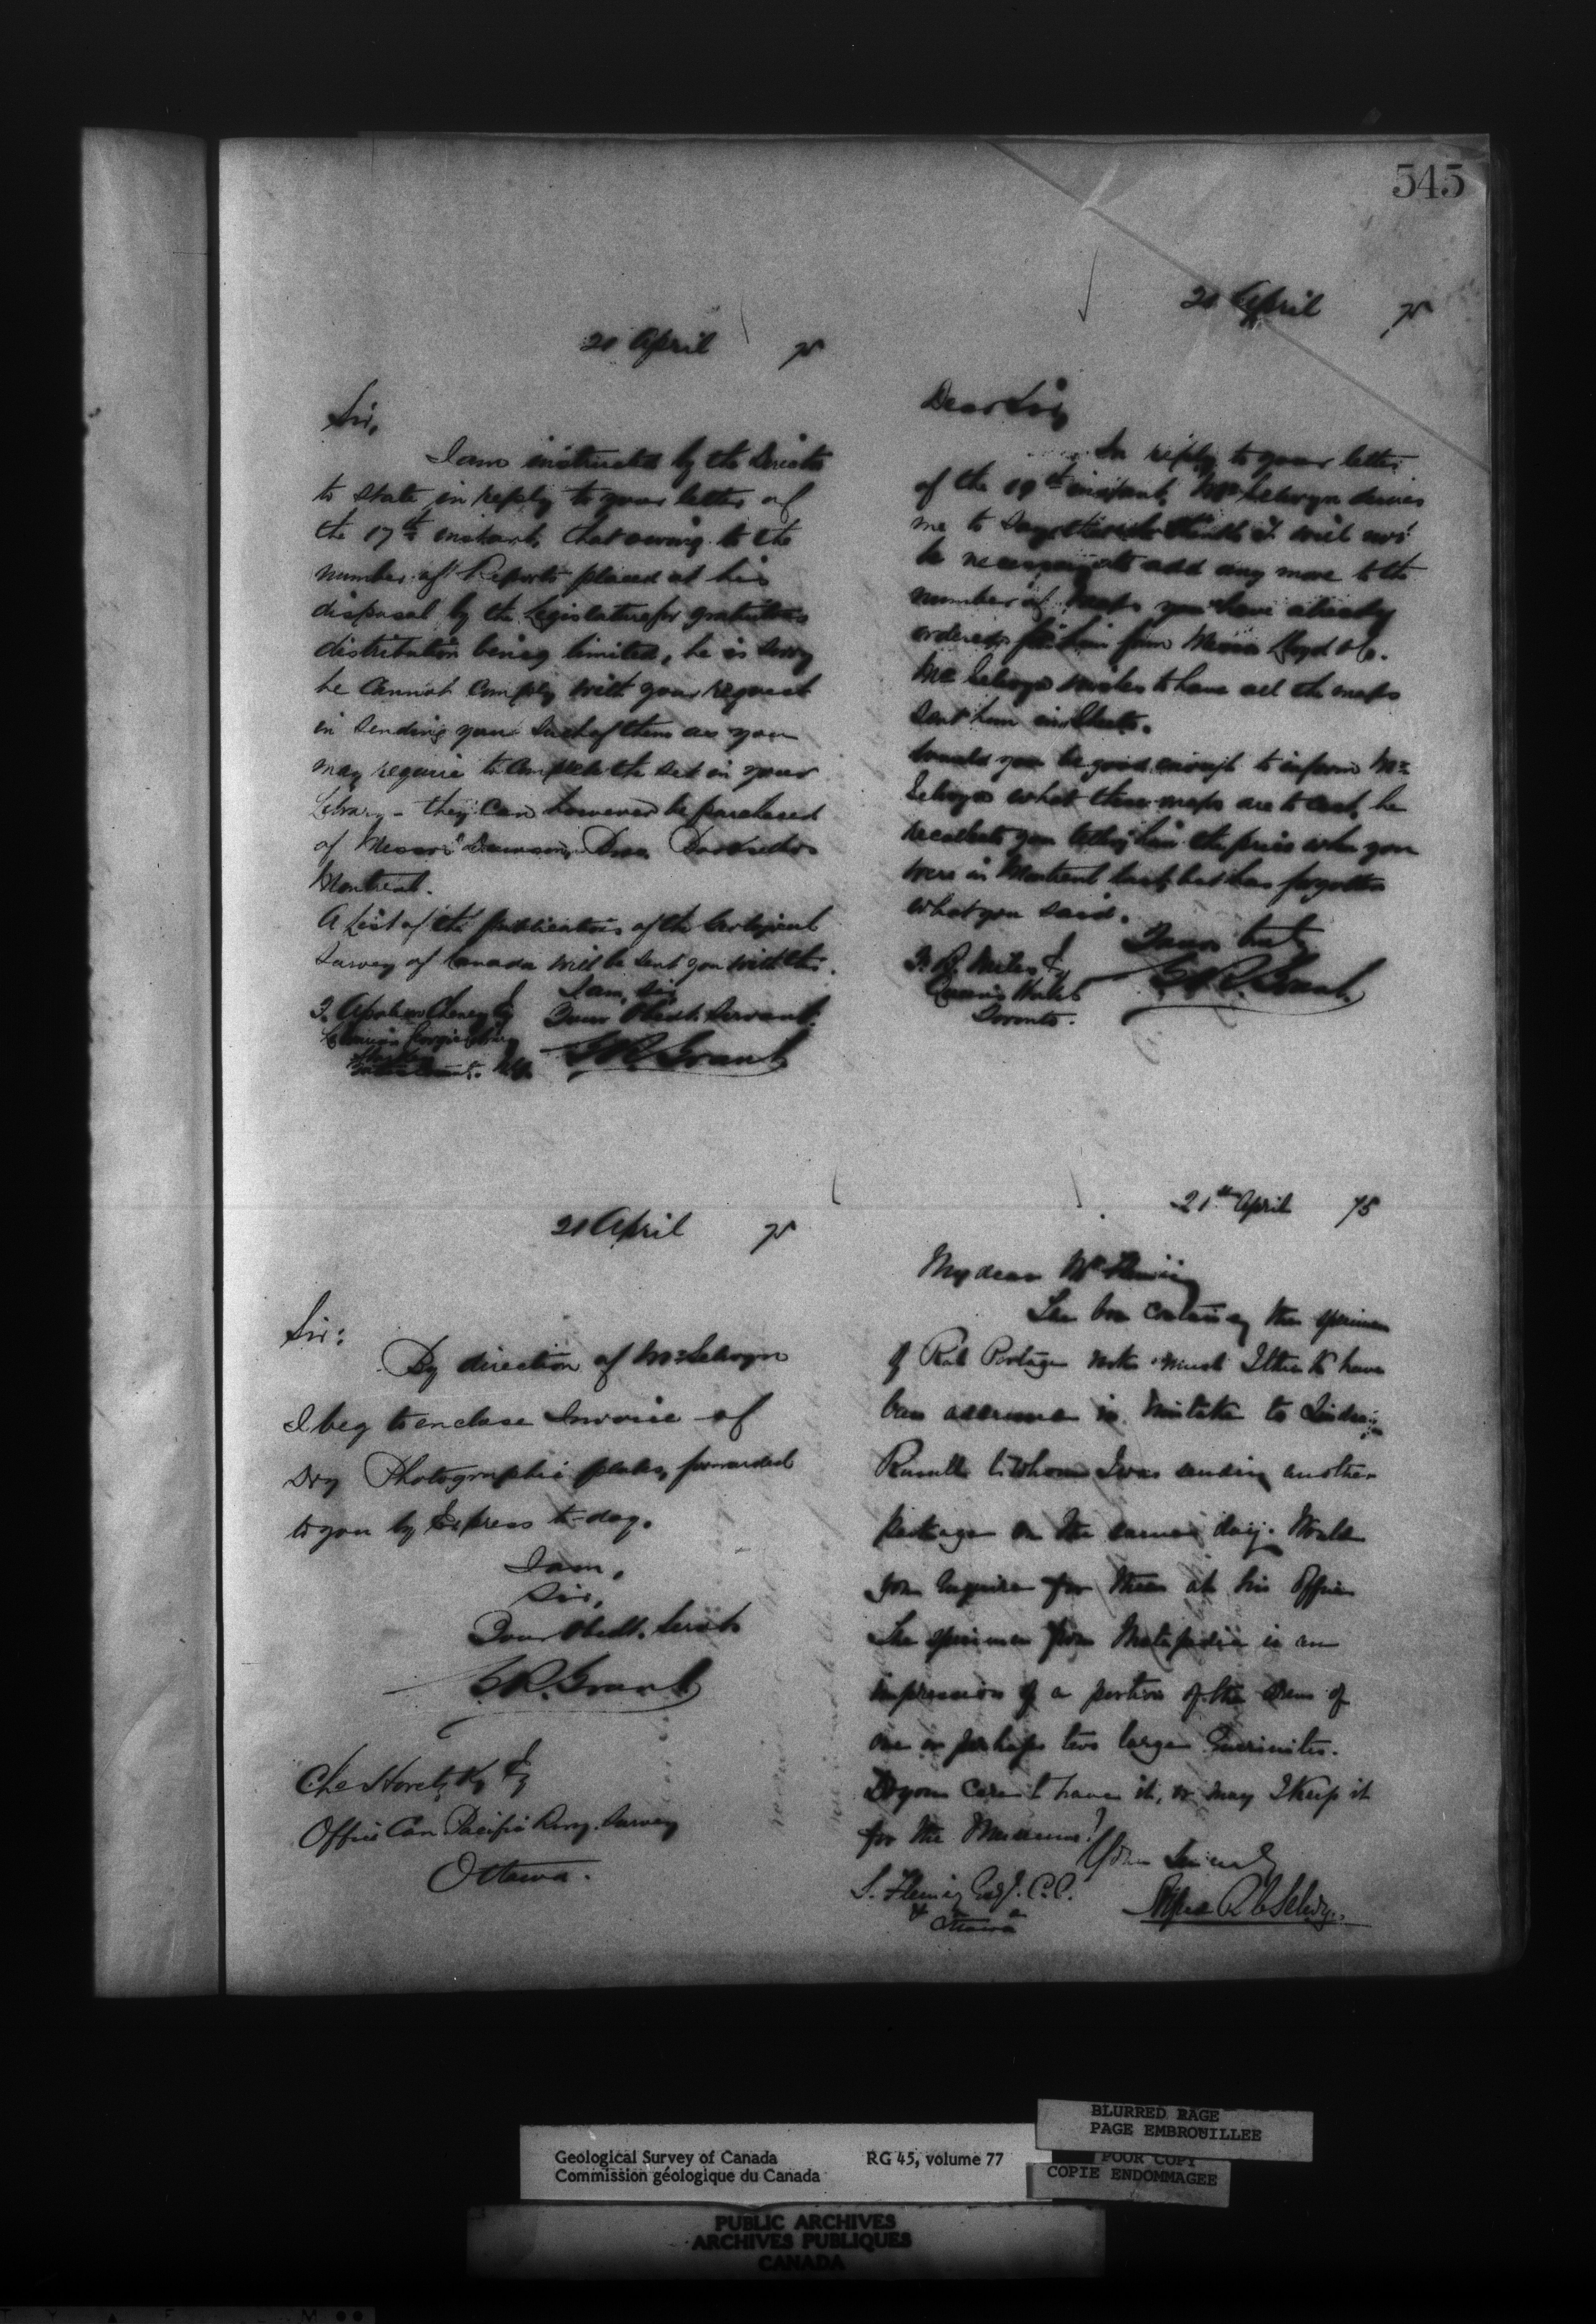 545
20 April 75
Sir,
I am instructed by the Director
to state in reply to your letter of
the 17th instant, that owing to the
number of Reports placed at his
disposal by the Legislature for gratuitous
distribution being limited, he is sorry
he cannot comply with your request
in sending you such of them as you
may require to complete the set in your
Library - they can however be purchased
of Messrs Dawson Bros. Booksellers
Montreal.
A List of the publications of the Geological
Survey of Canada will be sent you with this.
I am, Sir,
Your Obedt. Servant.
G.R. Grant
20 April 75
Dear Sir,
In reply to your letter
of the 19th instant, Mr Selwyn desires
me to say that he thinks it will not
be necessary to add any more to the
number of maps you have already
ordered for him from Messrs Lloyd & Co.
Mr Selwyn wishes to have all the maps
sent him in sheets.
Would you be good enough to inform Mr
Selwyn what these maps are to cost, he
recollects you telling him the price when you
were in Montreal last, but has forgotten
what you said.
Yours truly
G.R. Grant
Queen's Hotel
Toronto.
20 April 75
Sir:
By direction of Mr Selwyn
I beg to enclose Invoice of
Dry Photographic plates, forwarded
to you by Express to-day.
I am,
Sir,
Your Obedt. Servt.
G.R. Grant
Chs Horetzky
Office Can. Pacific Rwy. Survey
Ottawa.
21st April 75
My dear Mr Fleming
The box containing the specimens
of Rat Portage rocks must I think have
been addressed in mistake to Lindsay
Russell to whom I was sending another
package on the same day. Would
you enquire for them at his Office
The specimen from Metapedia is an
impression of a portion of the stem of
one or perhaps two large Encrinites.
Do you care to have it, or may I keep it
for the Museum?
Yours Sincerely
Alfred R C Selwyn
S. Fleming Esq. C.E.
Ottawa
Geological Survey of Canada RG 45, volume 77
Commission géologique du Canada
BLURRED PAGE
PAGE EMBROUILLEE
POOR COPY
COPIE ENDOMMAGEE
PUBLIC ARCHIVES
ARCHIVES PUBLIQUES
CANADA